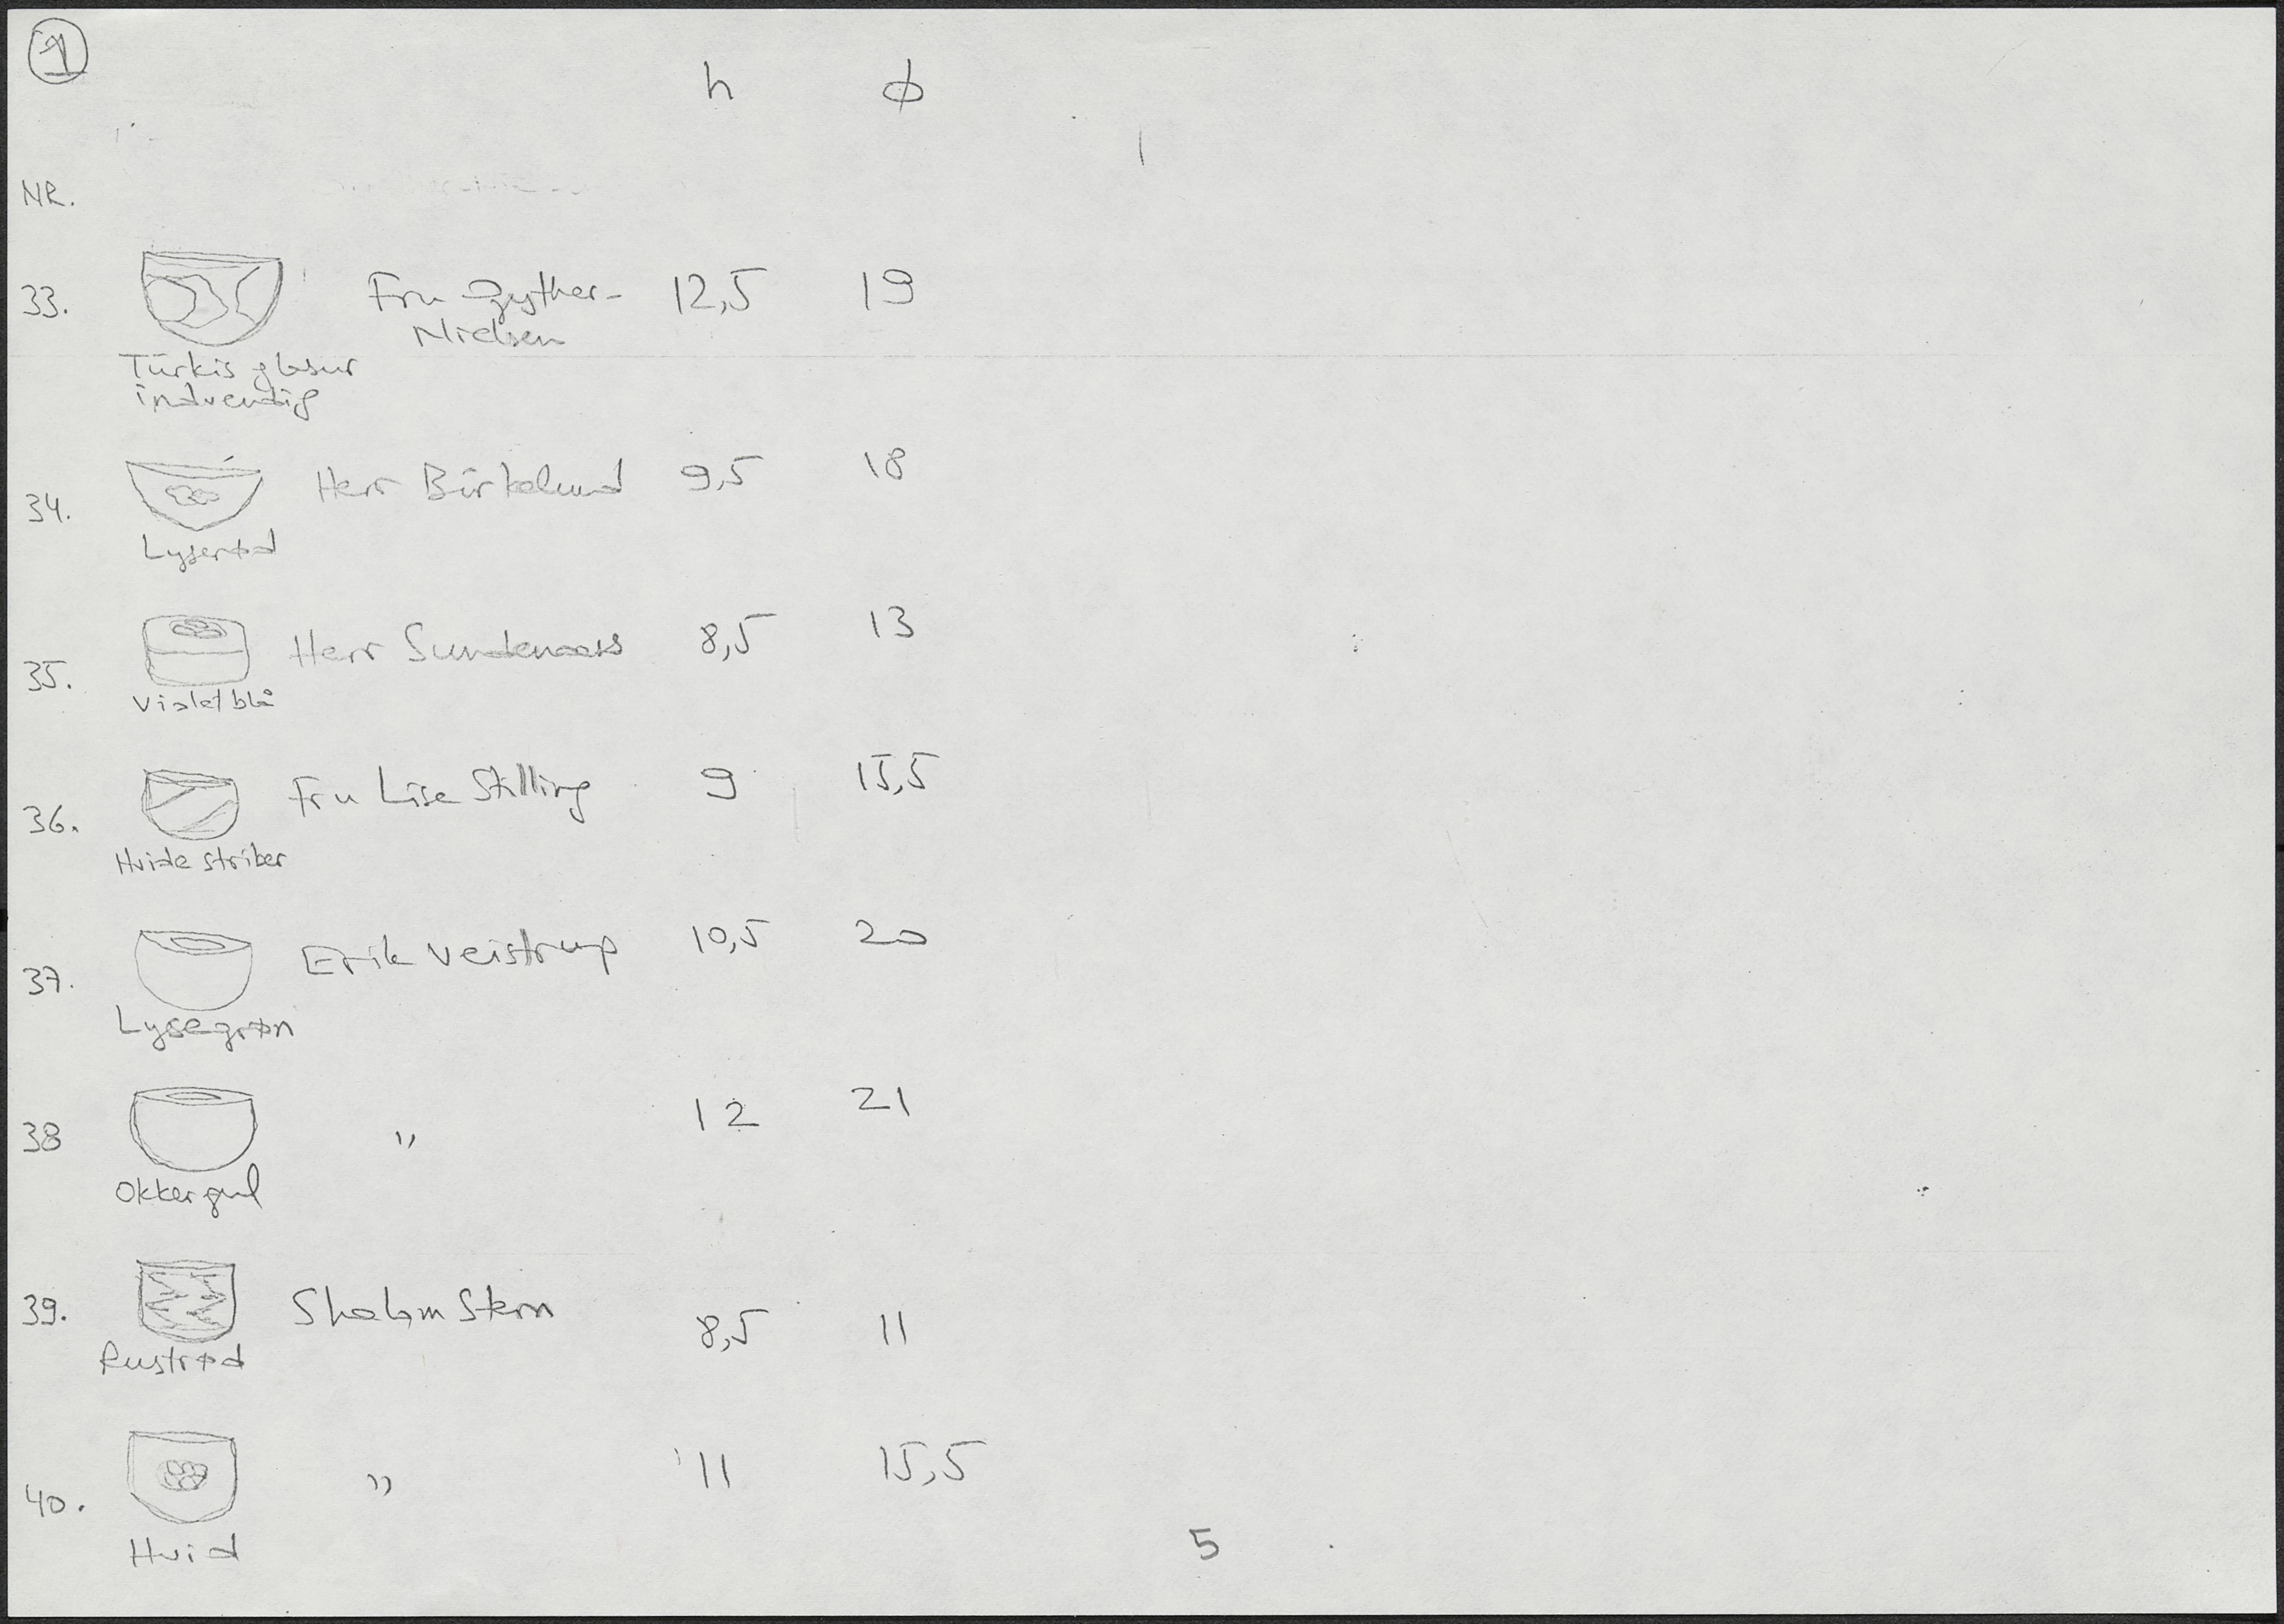 1
h ø
NR.
33. Fru Zyther- 12,5 19
Nielsen
Türkis glasur
indvendig
34. Herr Birkelund 9,5 18
Lyserød
35. Herr 8,5 13
Violet blå
36. Fru Lise Stilling 9 15,5
Hvide striber
37. Erik Veistrup 10,5 20
Lysegrøn
38 " 12 21
Okkergul
39. Shalom Stern 8,5 11
Rustrød
40. " 11 15,5
Hvid
5